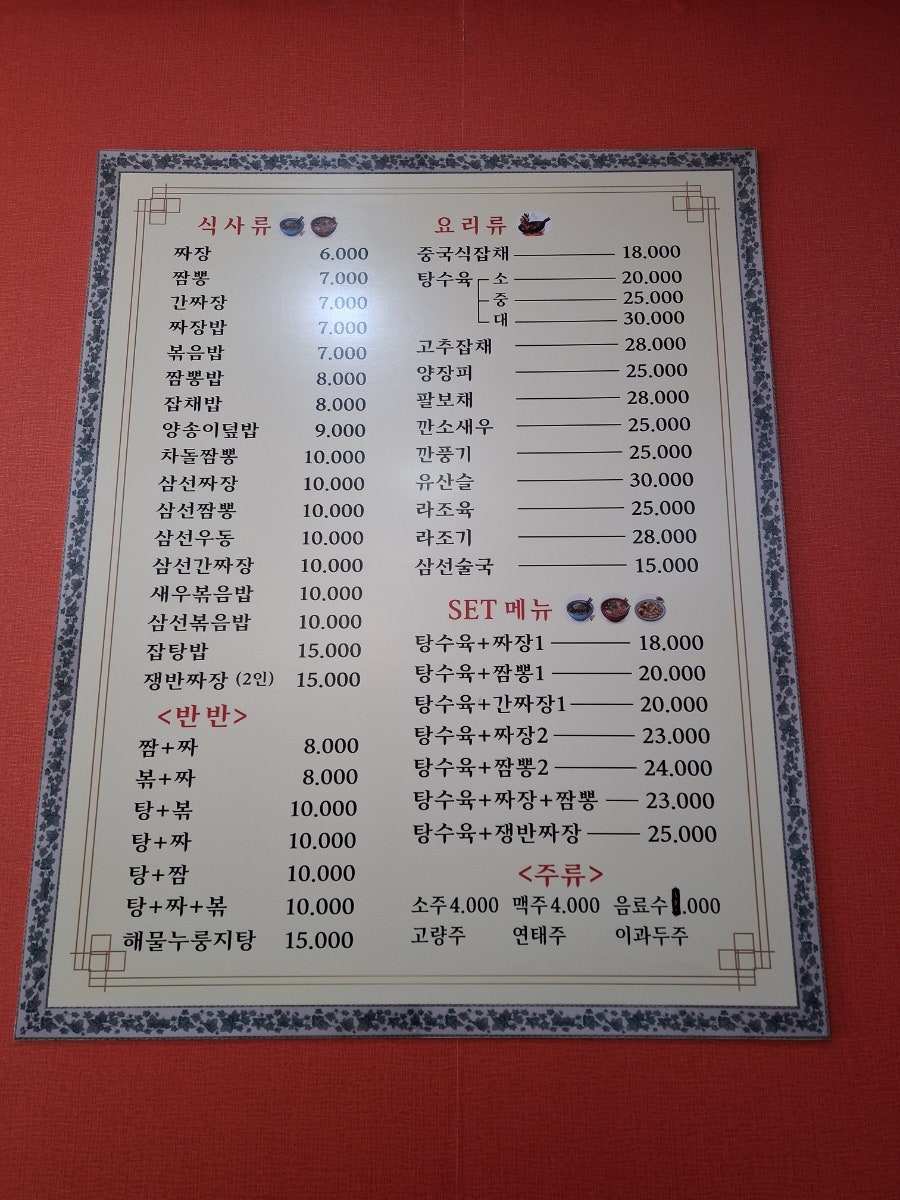 식사류
짜장 6.000
짬뽕 7.000
간짜장 7.000
짜장밥 7.000
볶음밥 7.000
짬뽕밥 8.000
잡채밥 8.000
양송이덮밥 9.000
차돌짬뽕 10.000
삼선짜장 10.000
삼선짬뽕 10.000
삼선우동 10.000
삼선간짜장 10.000
새우볶음밥 10.000
삼선볶음밥 10.000
잡탕밥 15.000
쟁반짜장 (2인) 15.000
<반반>
짬+짜 8.000
볶+짜 8.000
탕+볶 10.000
탕+짜 10.000
탕+짬 10.000
탕+짜+볶 10.000
해물누룽지탕 15.000
요리류
중국식잡채 18.000
탕수육 소 20.000
중 25.000
대 30.000
고추잡채 28.000
양장피 25.000
팔보채 28.000
깐소새우 25.000
깐풍기 25.000
유산슬 30.000
라조육 25.000
라조기 28.000
삼선술국 15.000
SET 메뉴
탕수육+짜장1 18.000
탕수육+짬뽕1 20.000
탕수육+간짜장1 20.000
탕수육+짜장2 23.000
탕수육+짬뽕2 24.000
탕수육+짜장+짬뽕 23.000
탕수육+쟁반짜장 25.000
<주류>
소주 4.000 맥주 4.000 음료수 .000
고량주 연태주 이과두주